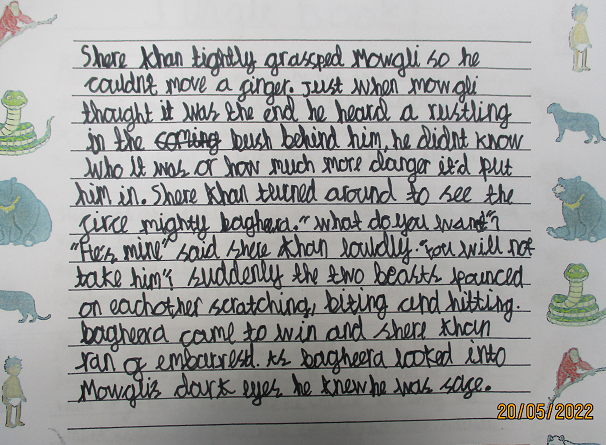 Shere Khan tightly grassped Mowgli so he
couldnt move a finger. Just when mowgli
thought it was the end he heard a rustling
in the coming bush behind him, he didnt know
who it was or how much more danger it'd put
him in. Shere Khan turned around to see the
firce mighty bagheera. "what do you want"?
"He's mine" said shere Khan louldly. "You will not
take him"! suddenly the two beasts pounced
on eachother scratching, biting and hitting.
bagheera came to win and shere Khan
ran of embarresd. As bagheera looked into
Mowglis dark eyes he knew he was safe.
20/05/2022